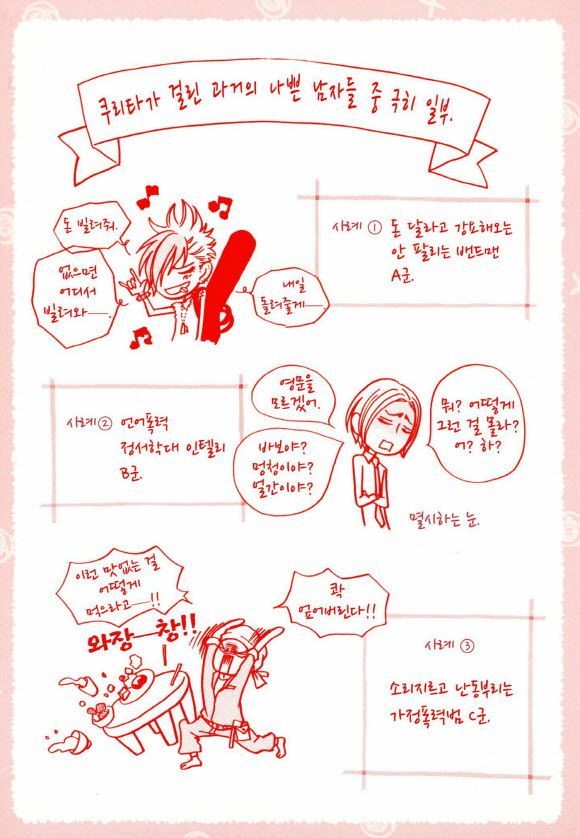 쿠리타가 걸린 과거의 나쁜 남자들 중 극히 일부.
돈 빌려줘.
없으면
어디서
빌려와──.
내일
돌려줄게──
사례 ① 돈 달라고 강요해오는
안 팔리는 밴드맨
A군.
사례 ② 언어폭력
정서학대 인텔리
B군.
영문을
모르겠어.
바보야?
멍청이야?
얼간이야?
뭐? 어떻게
그런 걸 몰라?
어? 하?
멸시하는 눈.
이런 맛없는 걸
어떻게
먹으라고──!!
와장──창!!
콱
엎어버린다!!
사례 ③
소리지르고 난동부리는
가정폭력범 C군.